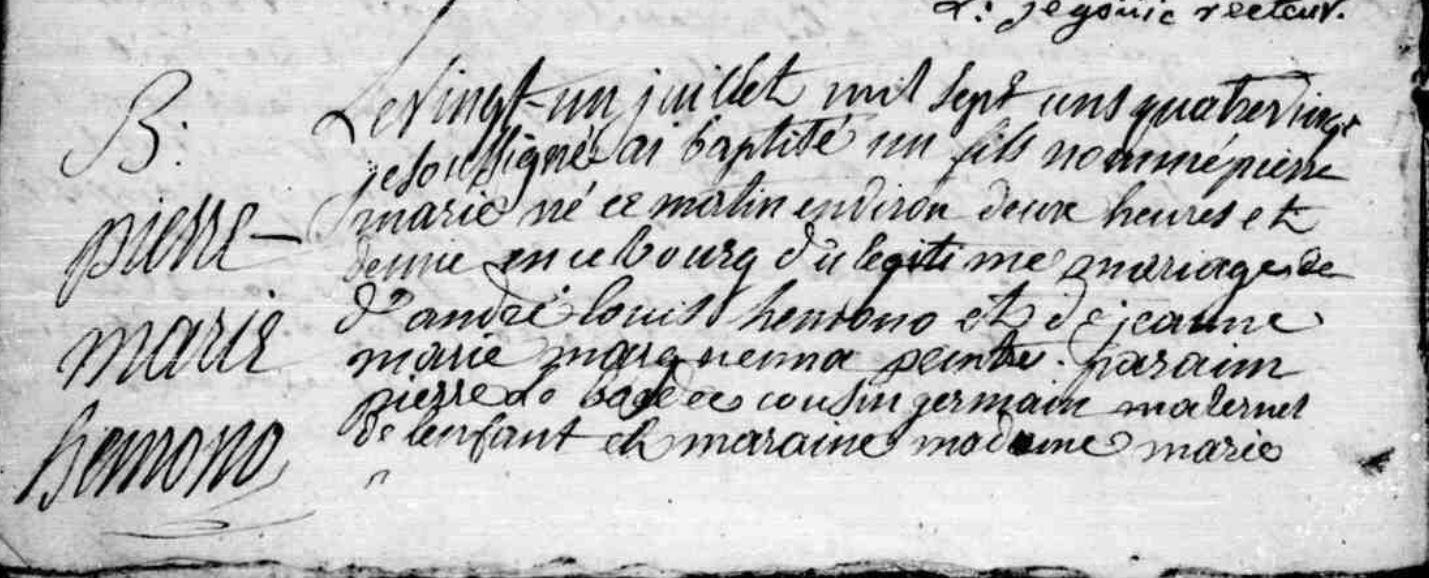 jegouic recteur.
B:
pierre-
marie
hemono
Le vingt-un juillet mil sept cens quatrevingt
je soussigné ai baptisé un fils nommé pierre
marie né ce matin environ deux heures et
demie en ce bourg du legitime mariage de
d'andré louis hemono et de jeanne
marie peintre. paraim
pierre Le cousin germain maternel
de lenfant et maraine madame marie